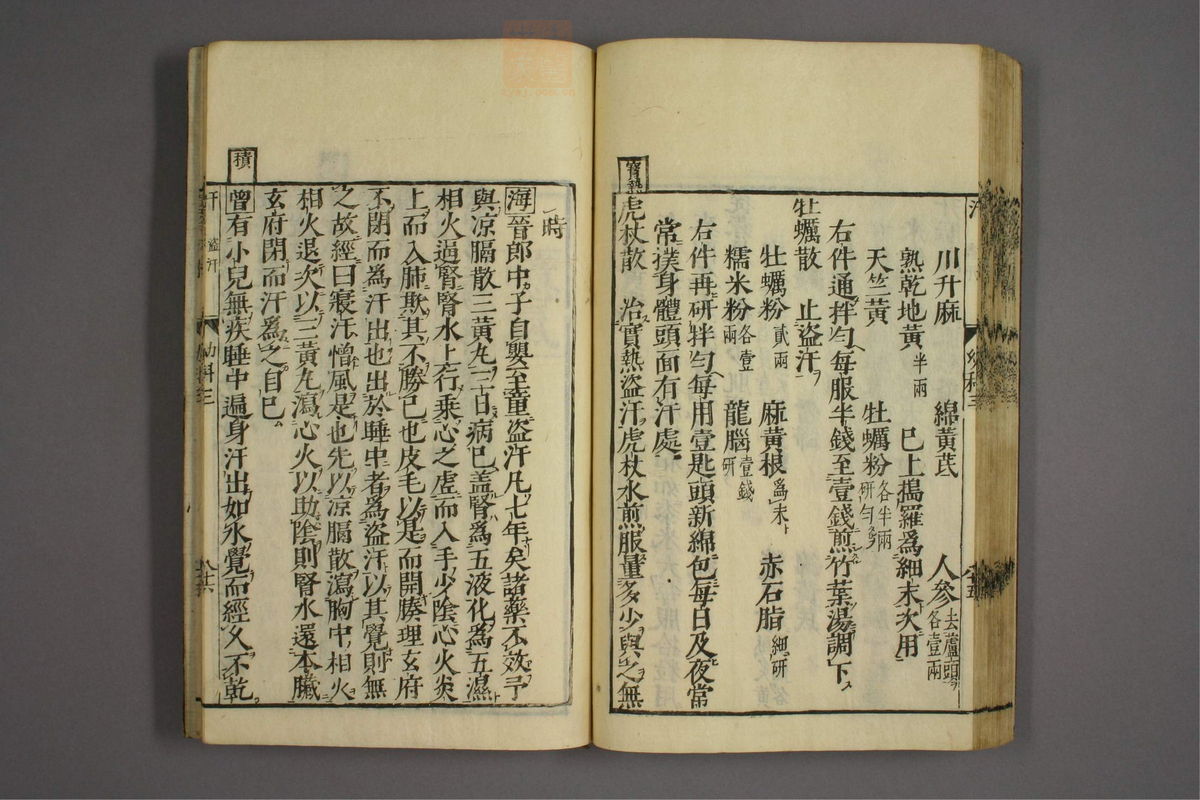 川升麻 綿黃芪 人參去蘆頭各壹兩
熟乾地黃半兩 巳上搗羅爲細末次用
天竺黃 牡蠣粉各半兩研勻
右件通拌勻每服半錢至壹錢煎竹葉湯調下
牡蠣散 止盜汗
牡蠣粉貳兩 麻黃根爲末 赤石脂細研各
糯米粉各壹兩 龍腦壹錢研
右件再研拌勻每用壹匙頭新綿包每日及夜常
常撲身體頭面有汗處
實熱
虎杖散 治實熱盜汗虎杖水煎服量多少與之無
時
海晉郎中子自嬰至童盜汗凡七年矣諸藥不效予
與凉膈散三黃丸三日病巳盖腎爲五液化為五濕
相火逼腎腎水上行乘心之虚而入手少陰心火炎
上而入肺欺其不勝巳也皮毛以是而開腠理玄府
不閉而為汗出也出於睡中者為盜汗以其覺則無
之故經曰寢汗憎風是也先以凉膈散瀉胸中相火
相火退次以三黃丸瀉心火以助陰則腎水還本臟
玄府閉而汗爲之自巳
積
曾有小兒無疾睡中遍身汗出如水覺而經久不乾
汗 盜汗 幼科三 八十六